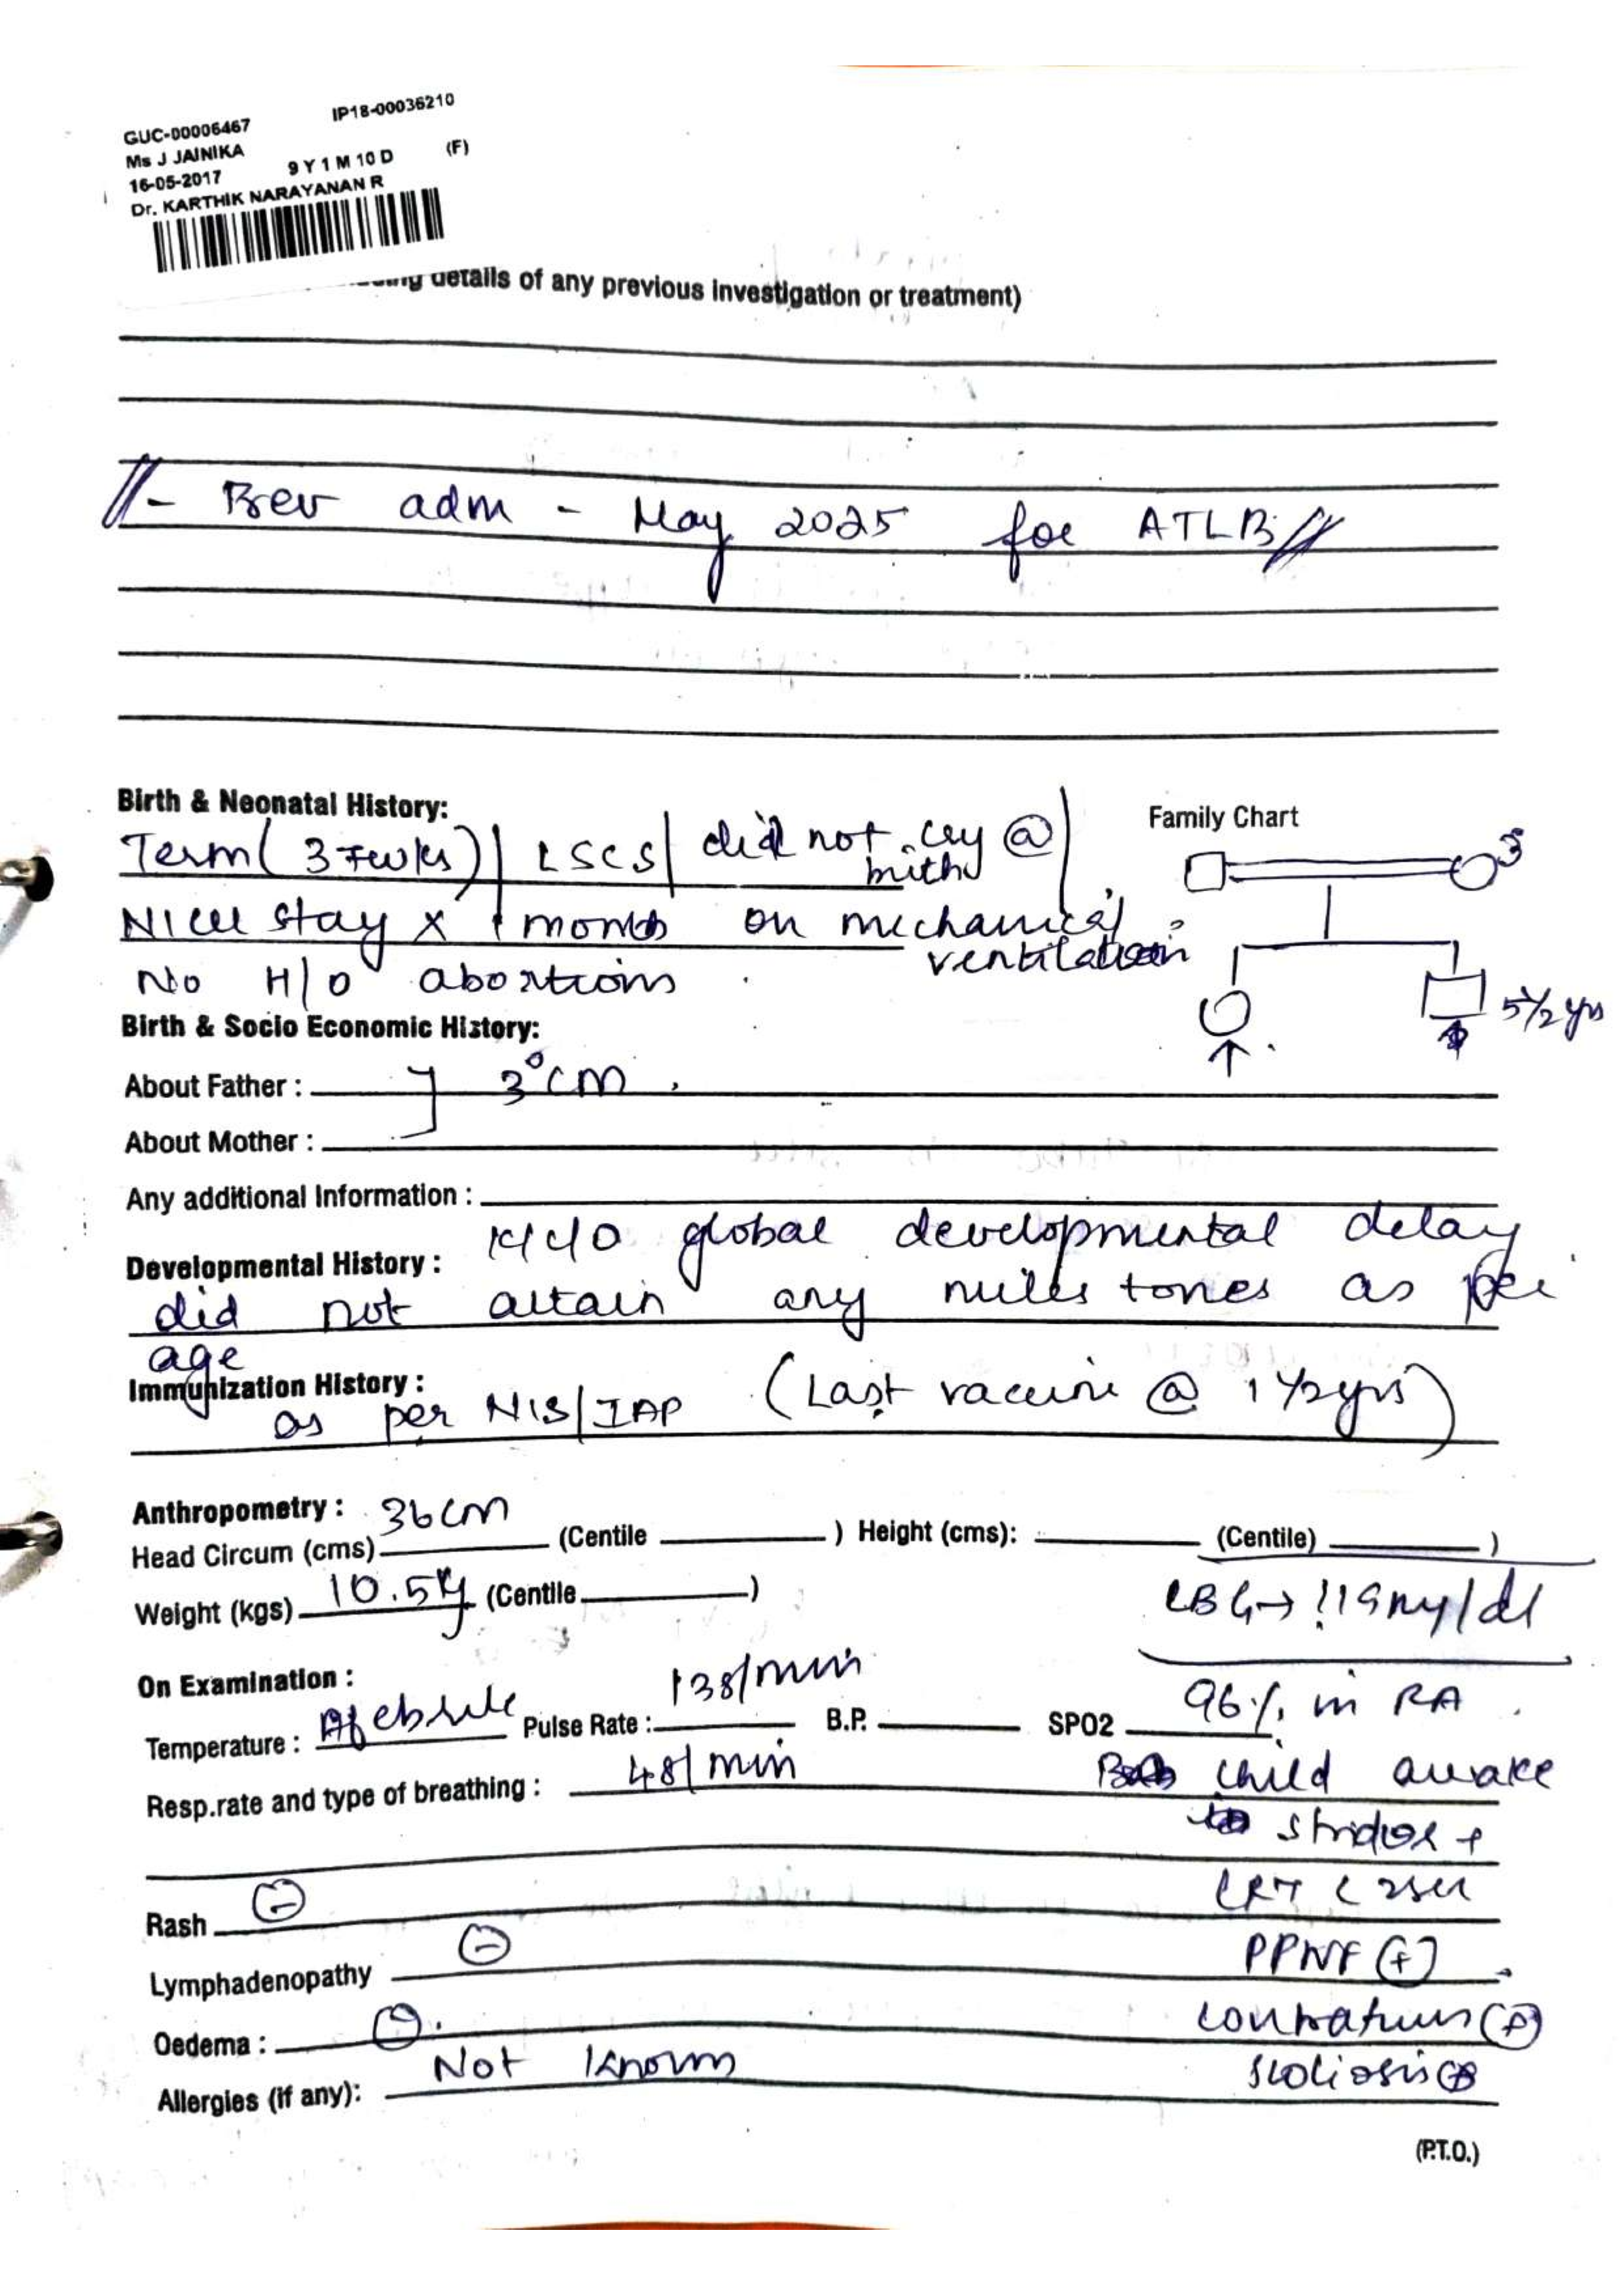 GUC-00006467 IP18-00036210
Ms J JAINIKA
16-05-2017 9 Y 1 M 10 D (F)
Dr. KARTHIK NARAYANAN R
details of any previous investigation or treatment)
- Prev adm - May 2025 for ATLB
Birth & Neonatal History:
Term ( 37wks) | LSCS | did not cry @ birth
Family Chart
3
NICU stay x 1 month on mechanical ventilation
No H/O abortions
5 1/2 yrs
Birth & Socio Economic History:
About Father : 3° CM
About Mother :
Any additional Information :
Developmental History : K/C/O global developmental delay
did not attain any milestones as per
age
Immunization History :
as per NIS/IAP (Last vaccine @ 1 1/2 yrs)
Anthropometry :
Head Circum (cms) 36cm (Centile ) Height (cms): (Centile) )
Weight (kgs) 10.5kg (Centile )
CBG → 119mg/dl
On Examination :
Temperature : Afebrile Pulse Rate : 138/min B.P. SPO2 96% in RA
Resp.rate and type of breathing : 48/min
child awake
stridor +
CRT < 2sec
Rash (-)
PPWF (+)
Lymphadenopathy (-)
Oedema : (-)
contractures (+)
Allergies (if any): Not known
scoliosis (+)
(P.T.O.)